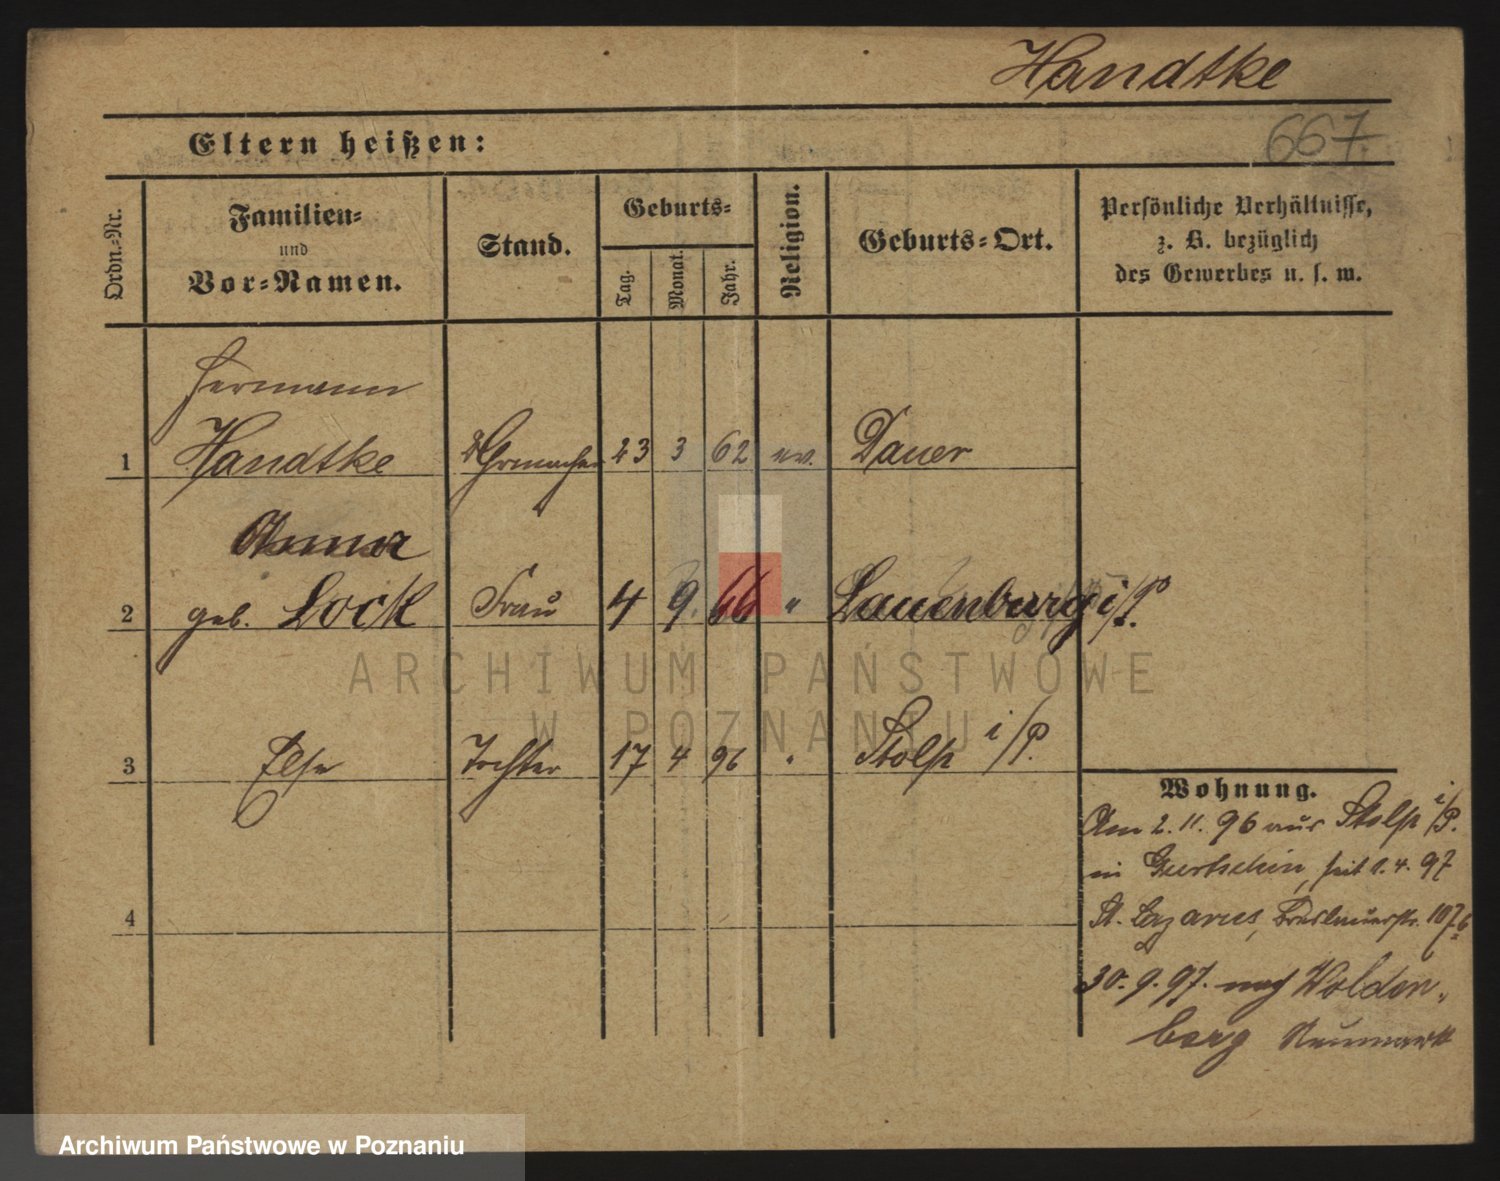 Handtke
667.
Eltern heißen:
Ordn.=Nr.
Familien=
und
Vor=Namen.
Stand.
Geburts=
Tag.
Monat.
Jahr.
Religion.
Geburts=Ort.
Persönliche Verhältnisse,
z. B. bezüglich
des Gewerbes u. s. w.
Hermann
1 Handtke 23 3 62 ev. Dauer
Anna
2 geb. Lock Frau 4 9. 66 " Lauenburg i/P.
ARCHIWUM PAŃSTWOWE
W POZNANIU
3 Else Tochter 17 4 96 " Stolp i/P.
4
Wohnung.
Am 2. 11. 96 aus Stolp i/P.
in Gurtschin, seit 1. 4. 97
St. Lazarus, Breslauerstr. 107
30. 9. 97. nach Wolden-
berg Neumark
Archiwum Państwowe w Poznaniu